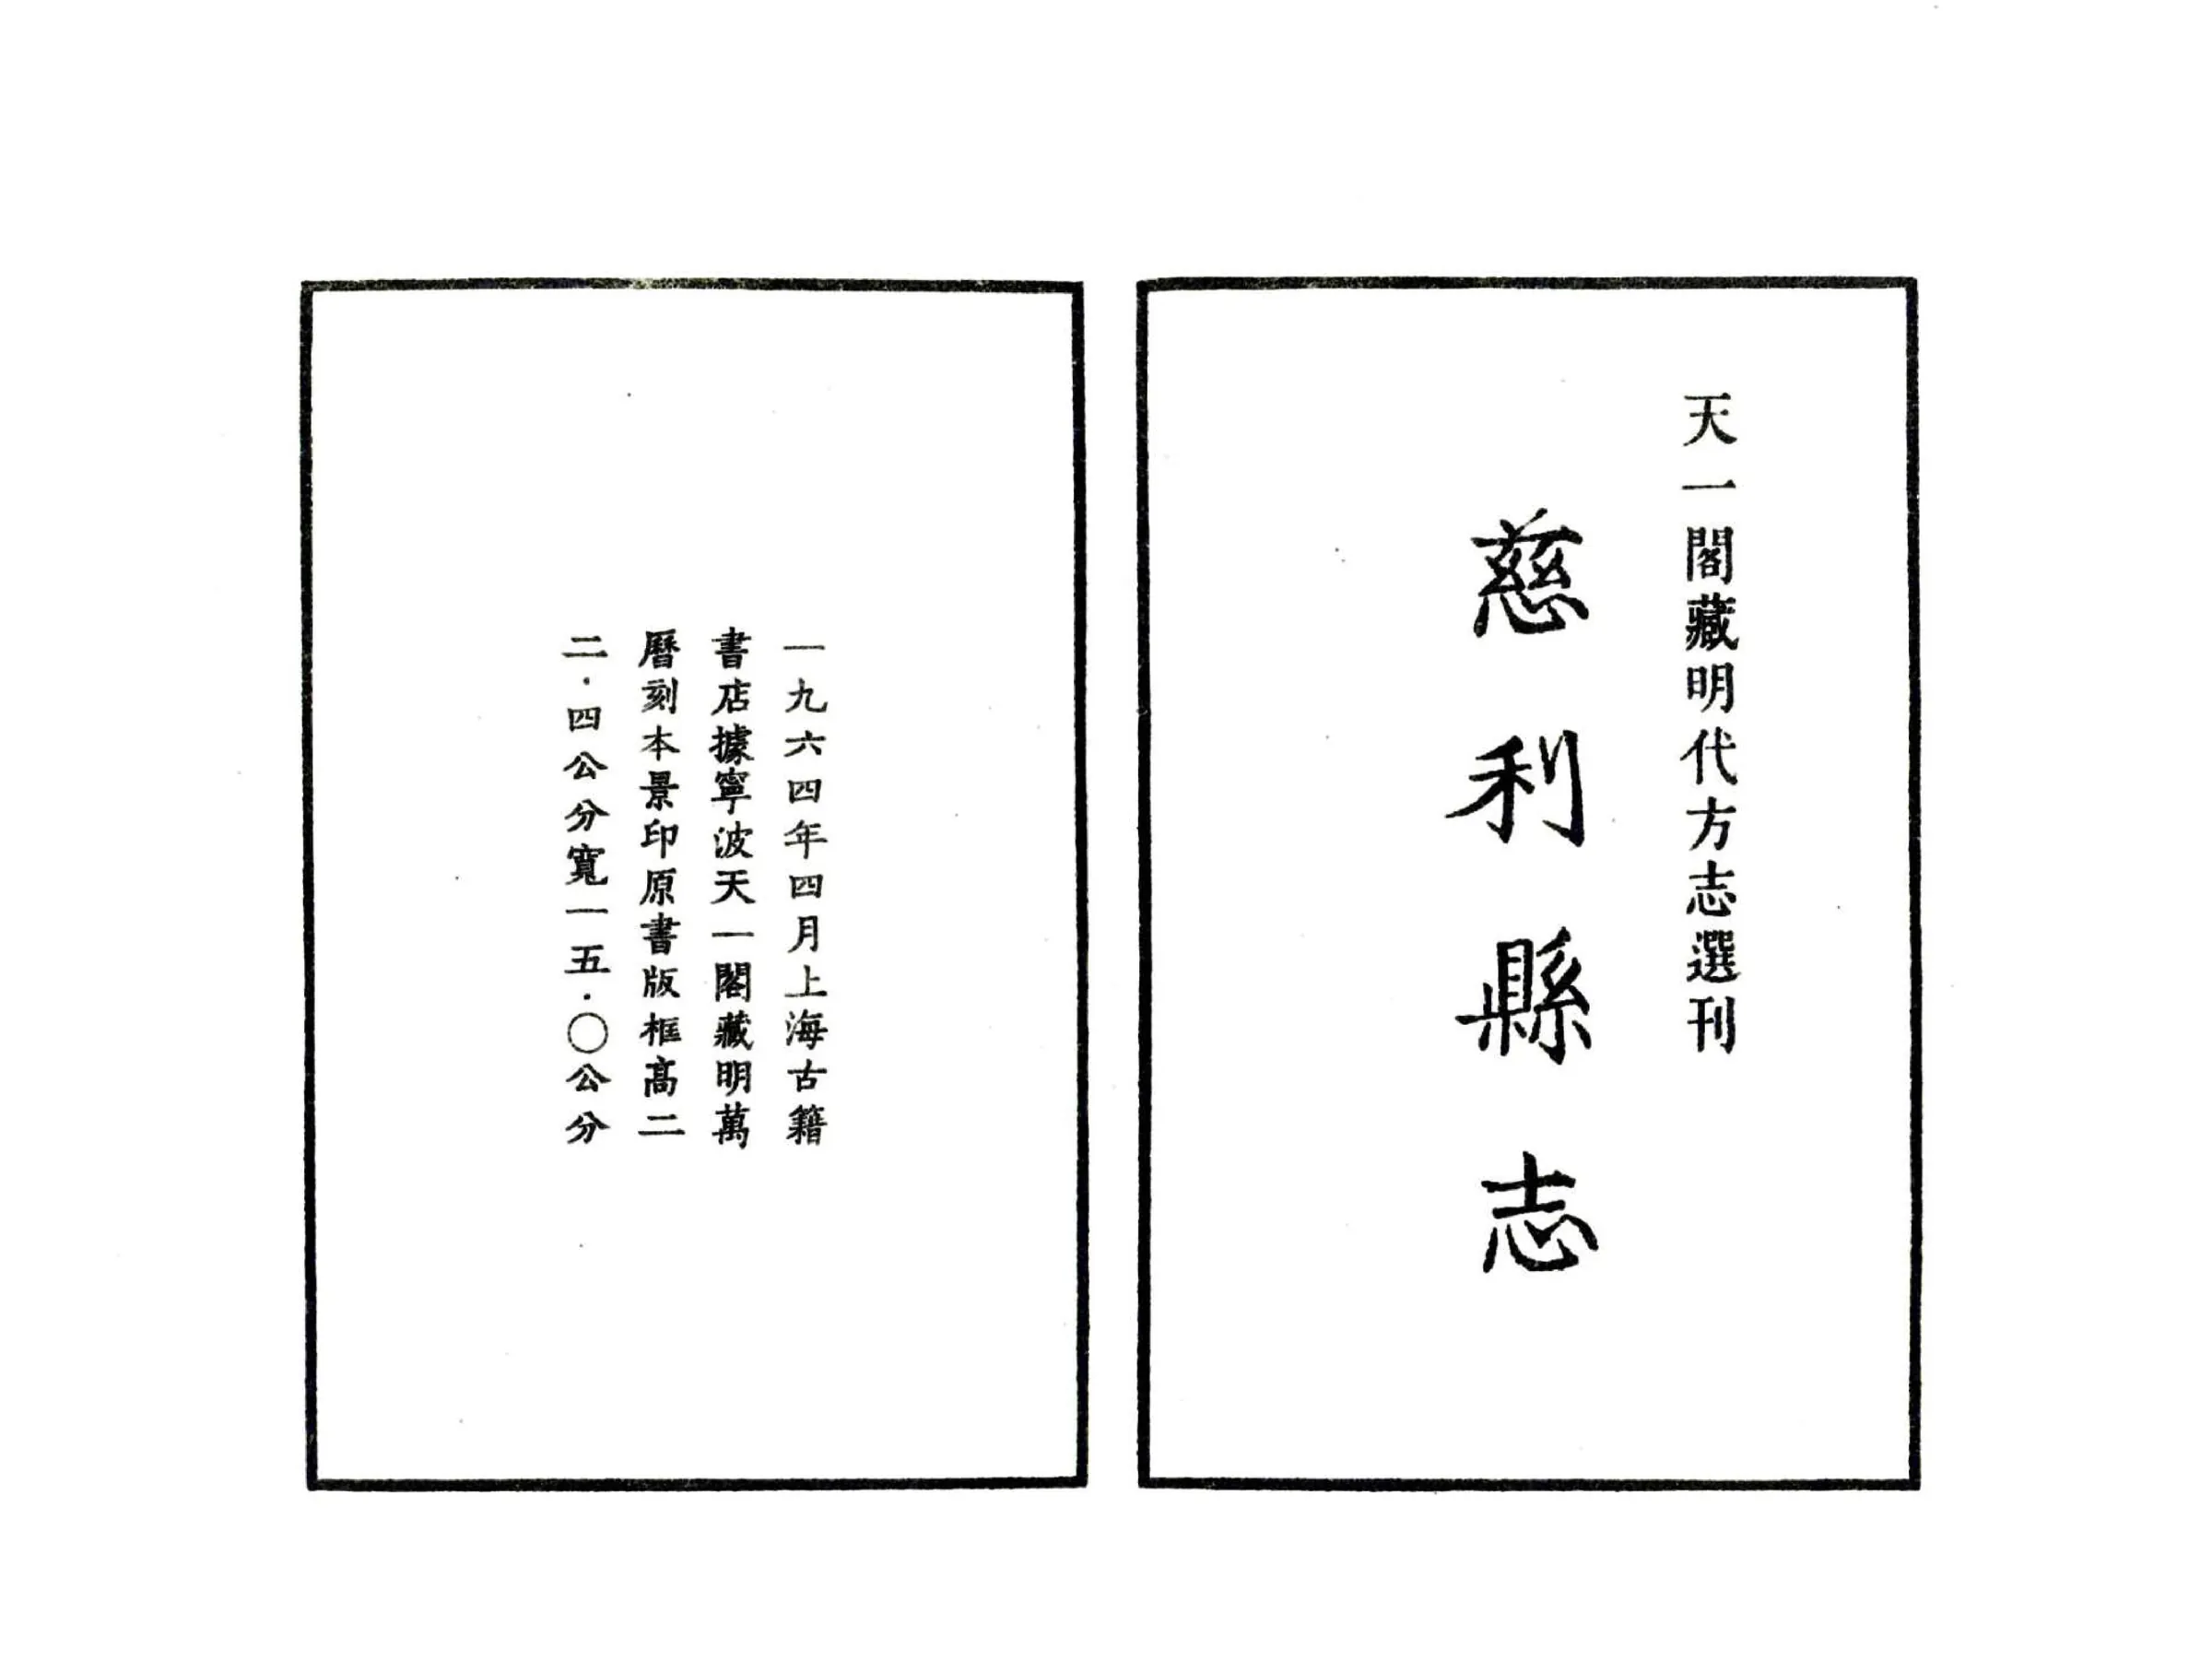 天一閣藏明代方志選刊
慈利縣志
一九六四年四月上海古籍
書店據寧波天一閣藏明萬
曆刻本景印原書版框高二
二·四公分寬一五·〇公分